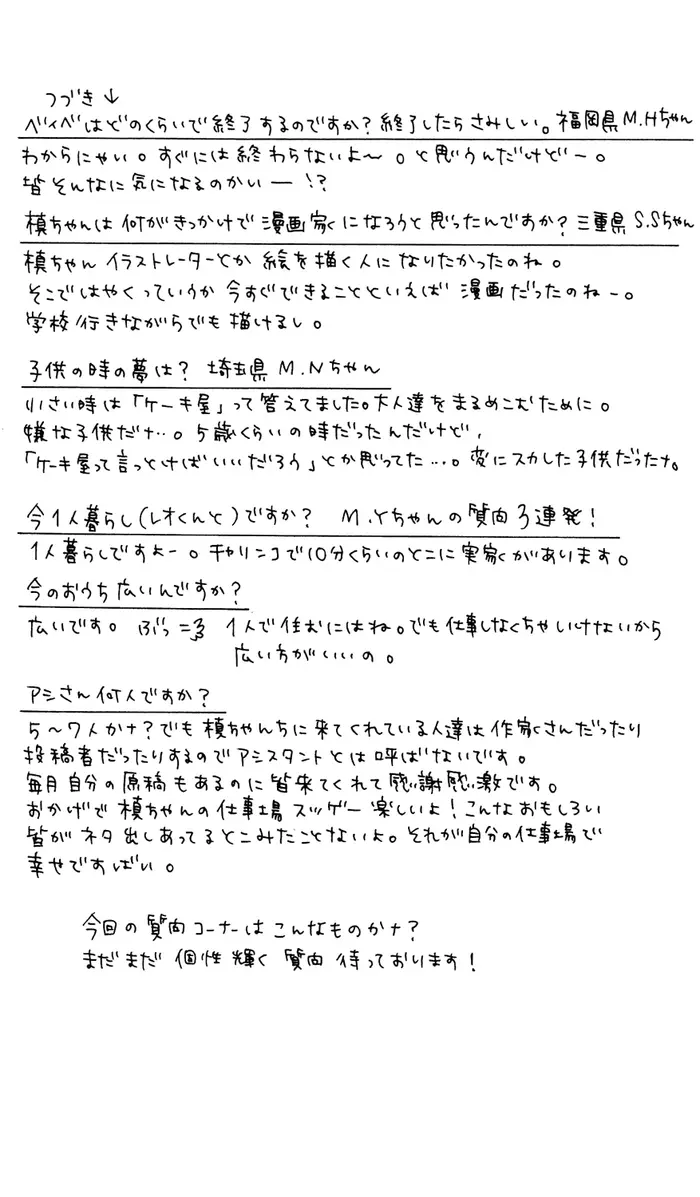 つづき↓
ベイベはどのくらいで終了するのですか?終了したらさみしい。福岡県M.Hちゃん
わからにゃい。すぐには終わらないよ〜。と思うんだけどー。
皆そんなに気になるのかいー!?
槙ちゃんは何がきっかけで漫画家になろうと思ったんですか?三重県S.Sちゃん
槙ちゃんイラストレーターとか絵を描く人になりたかったのね。
そこではやくっていうか今すぐできることといえば漫画だったのねー。
学校行きながらでも描けるし。
子供の時の夢は? 埼玉県M.Nちゃん
小さい時は「ケーキ屋」って答えてました。大人達をまるめこむために。
嫌な子供だナ…。5歳くらいの時だったんだけど、
「ケーキ屋って言っとけばいいだろう」とか思ってた…。変にスカした子供だったナ。
今1人暮らし(レオくんと)ですか? M.Yちゃんの質問3連発!
1人暮らしですよー。チャリンコで10分くらいのとこに実家があります。
今のおうち広いんですか?
広いです。ぶっこ 1人で住むにはね。でも仕事しなくちゃいけないから
広い方がいいの。
アシさん何人ですか?
5〜7人かナ?でも槙ちゃんちに来てくれている人達は作家さんだったり
投稿者だったりするのでアシスタントとは呼ばないです。
毎月自分の原稿もあるのに皆来てくれて感謝感激です。
おかげで槙ちゃんの仕事場スッゲー楽しいよ!こんなおもしろい
皆がネタ出しあってるとこみたことないよ。それが自分の仕事場で
幸せですばい。
今回の質問コーナーはこんなものかナ?
まだまだ個性輝く質問待っております!